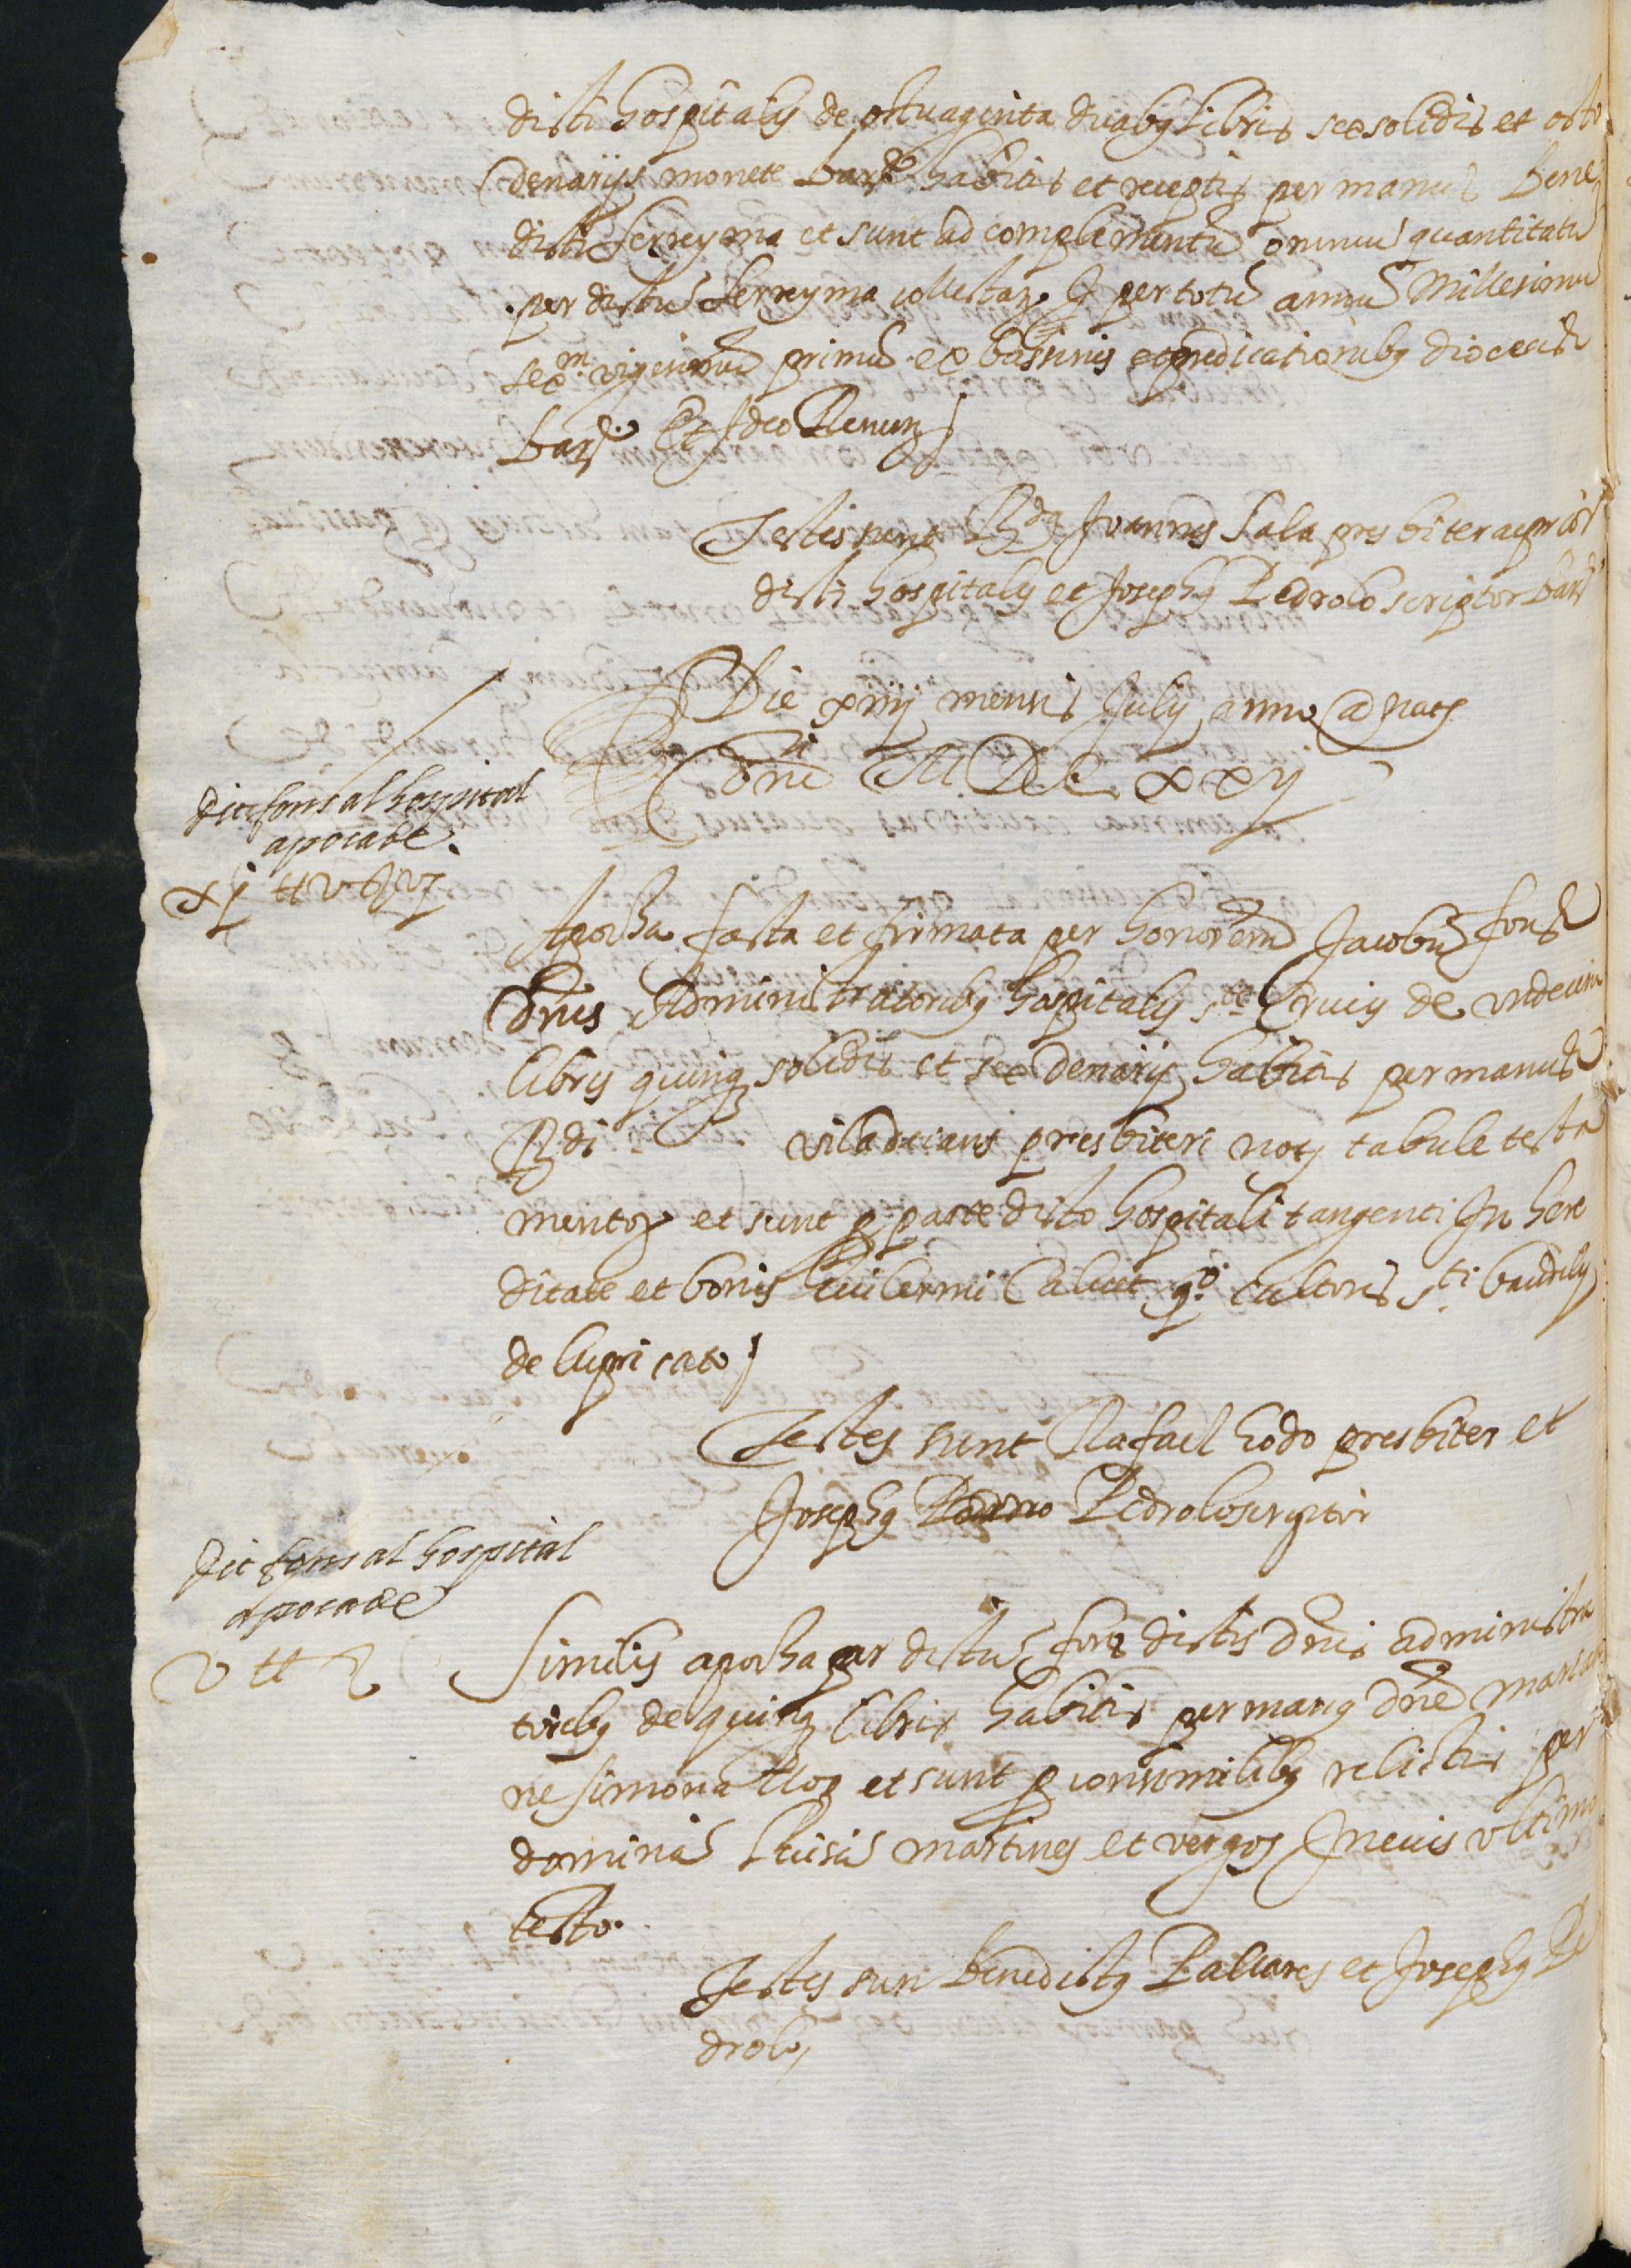 dicti hospitalis de octuaginta duabꝫ libris sex solidis et octo
denarijs monete barꝫ habitis et receptis per manus Bene
dicti ferreyma et sunt ad complementũ omniũ quantitatũ
per dictũ ferreyma collectaꝝ per totũ annũ Millesimũ
sexᵐ. vigesimũ primũ ex bassinis et predicationibꝫ diocesis
barꝫ. Et Ideo Renunꝫ
Testes sunt Rdꝰ Joannes Sala presbiter ac prior
dicti hospitalis et Josephꝰ Pedrolo scriptor barꝫ
Die xiiij mensis Julij anno a natꝫ
Dni M DC xxij
dit fons al hospital
apoca de.
xj ℔ v ß vj
Apocha facta et firmata per honorem̃ Jacobũ fons
dnis Administratoribꝫ hospitalis Sᵗᵉ Crucis de undecim
libris quinqꝫ solidis et sex denarijs habitis per manus
Rdi viladecans presbiteri notꝫ tabule testa
mentoꝝ et sunt ꝓ parte dicto hospitali tangenti In here
ditate et bonis Guilermi Calvet qᵒ. cultoris Sᵗⁱ baudilij
de lupricato
Testes sunt Rafael hodo presbiter et
Josephꝰ Pedrolo scriptor
dit fons al hospital
apoca de
v ℔
Similis apocha per dictũ fons dictis dnis administra
toribꝫ de quinqꝫ libris habitis per manꝰ dne
ne simona et sunt ꝓ consimilibꝫ relictis per
dominã Luisã martines et vergos In eius ultimo
testo.
Testes sun benedictꝰ Pallares et Josephꝰ Pe
drolo